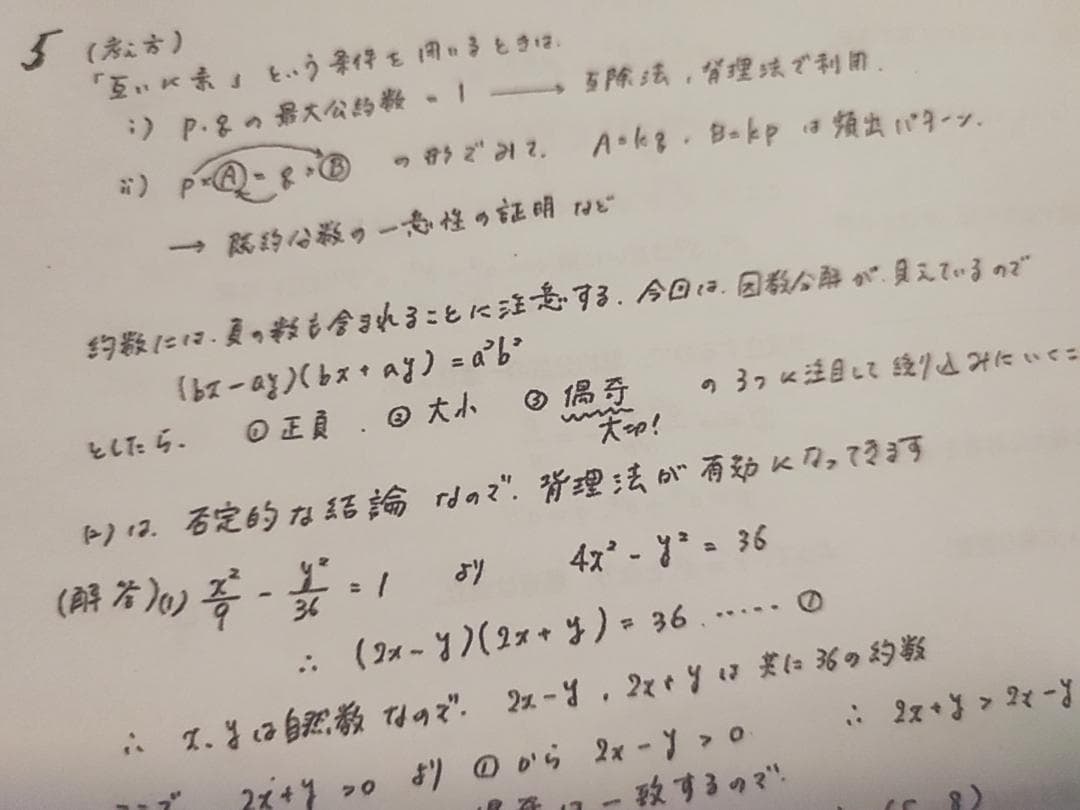 5 (考え方)
「互いに素」という条件を用いるときは.
i) p.qの最大公約数=1 → 互除法,背理法で利用.
ii) p×Ⓐ=q×Ⓑ の形でみて. A=kq, B=kp は頻出パターン.
→ 既約分数の一意性の証明など
約数には.負の数も含まれることに注意する.今回は.因数分解が.見えているので
(bx-ay)(bx+ay)=a²b²
としたら. ①正負. ②大小 ③偶奇 の3つに注目して絞り込みにいくこ
大切!
(2)は.否定的な結論なので.背理法が有効になってきます
(解答)(1) x²/9 - y²/36 = 1 より 4x²-y²=36
∴ (2x-y)(2x+y)=36 …… ①
∴ x.yは自然数なので. 2x-y, 2x+yは共に36の約数
2x+y>0 より ①から 2x-y>0 ∴ 2x+y>2x-y
は一致するので.